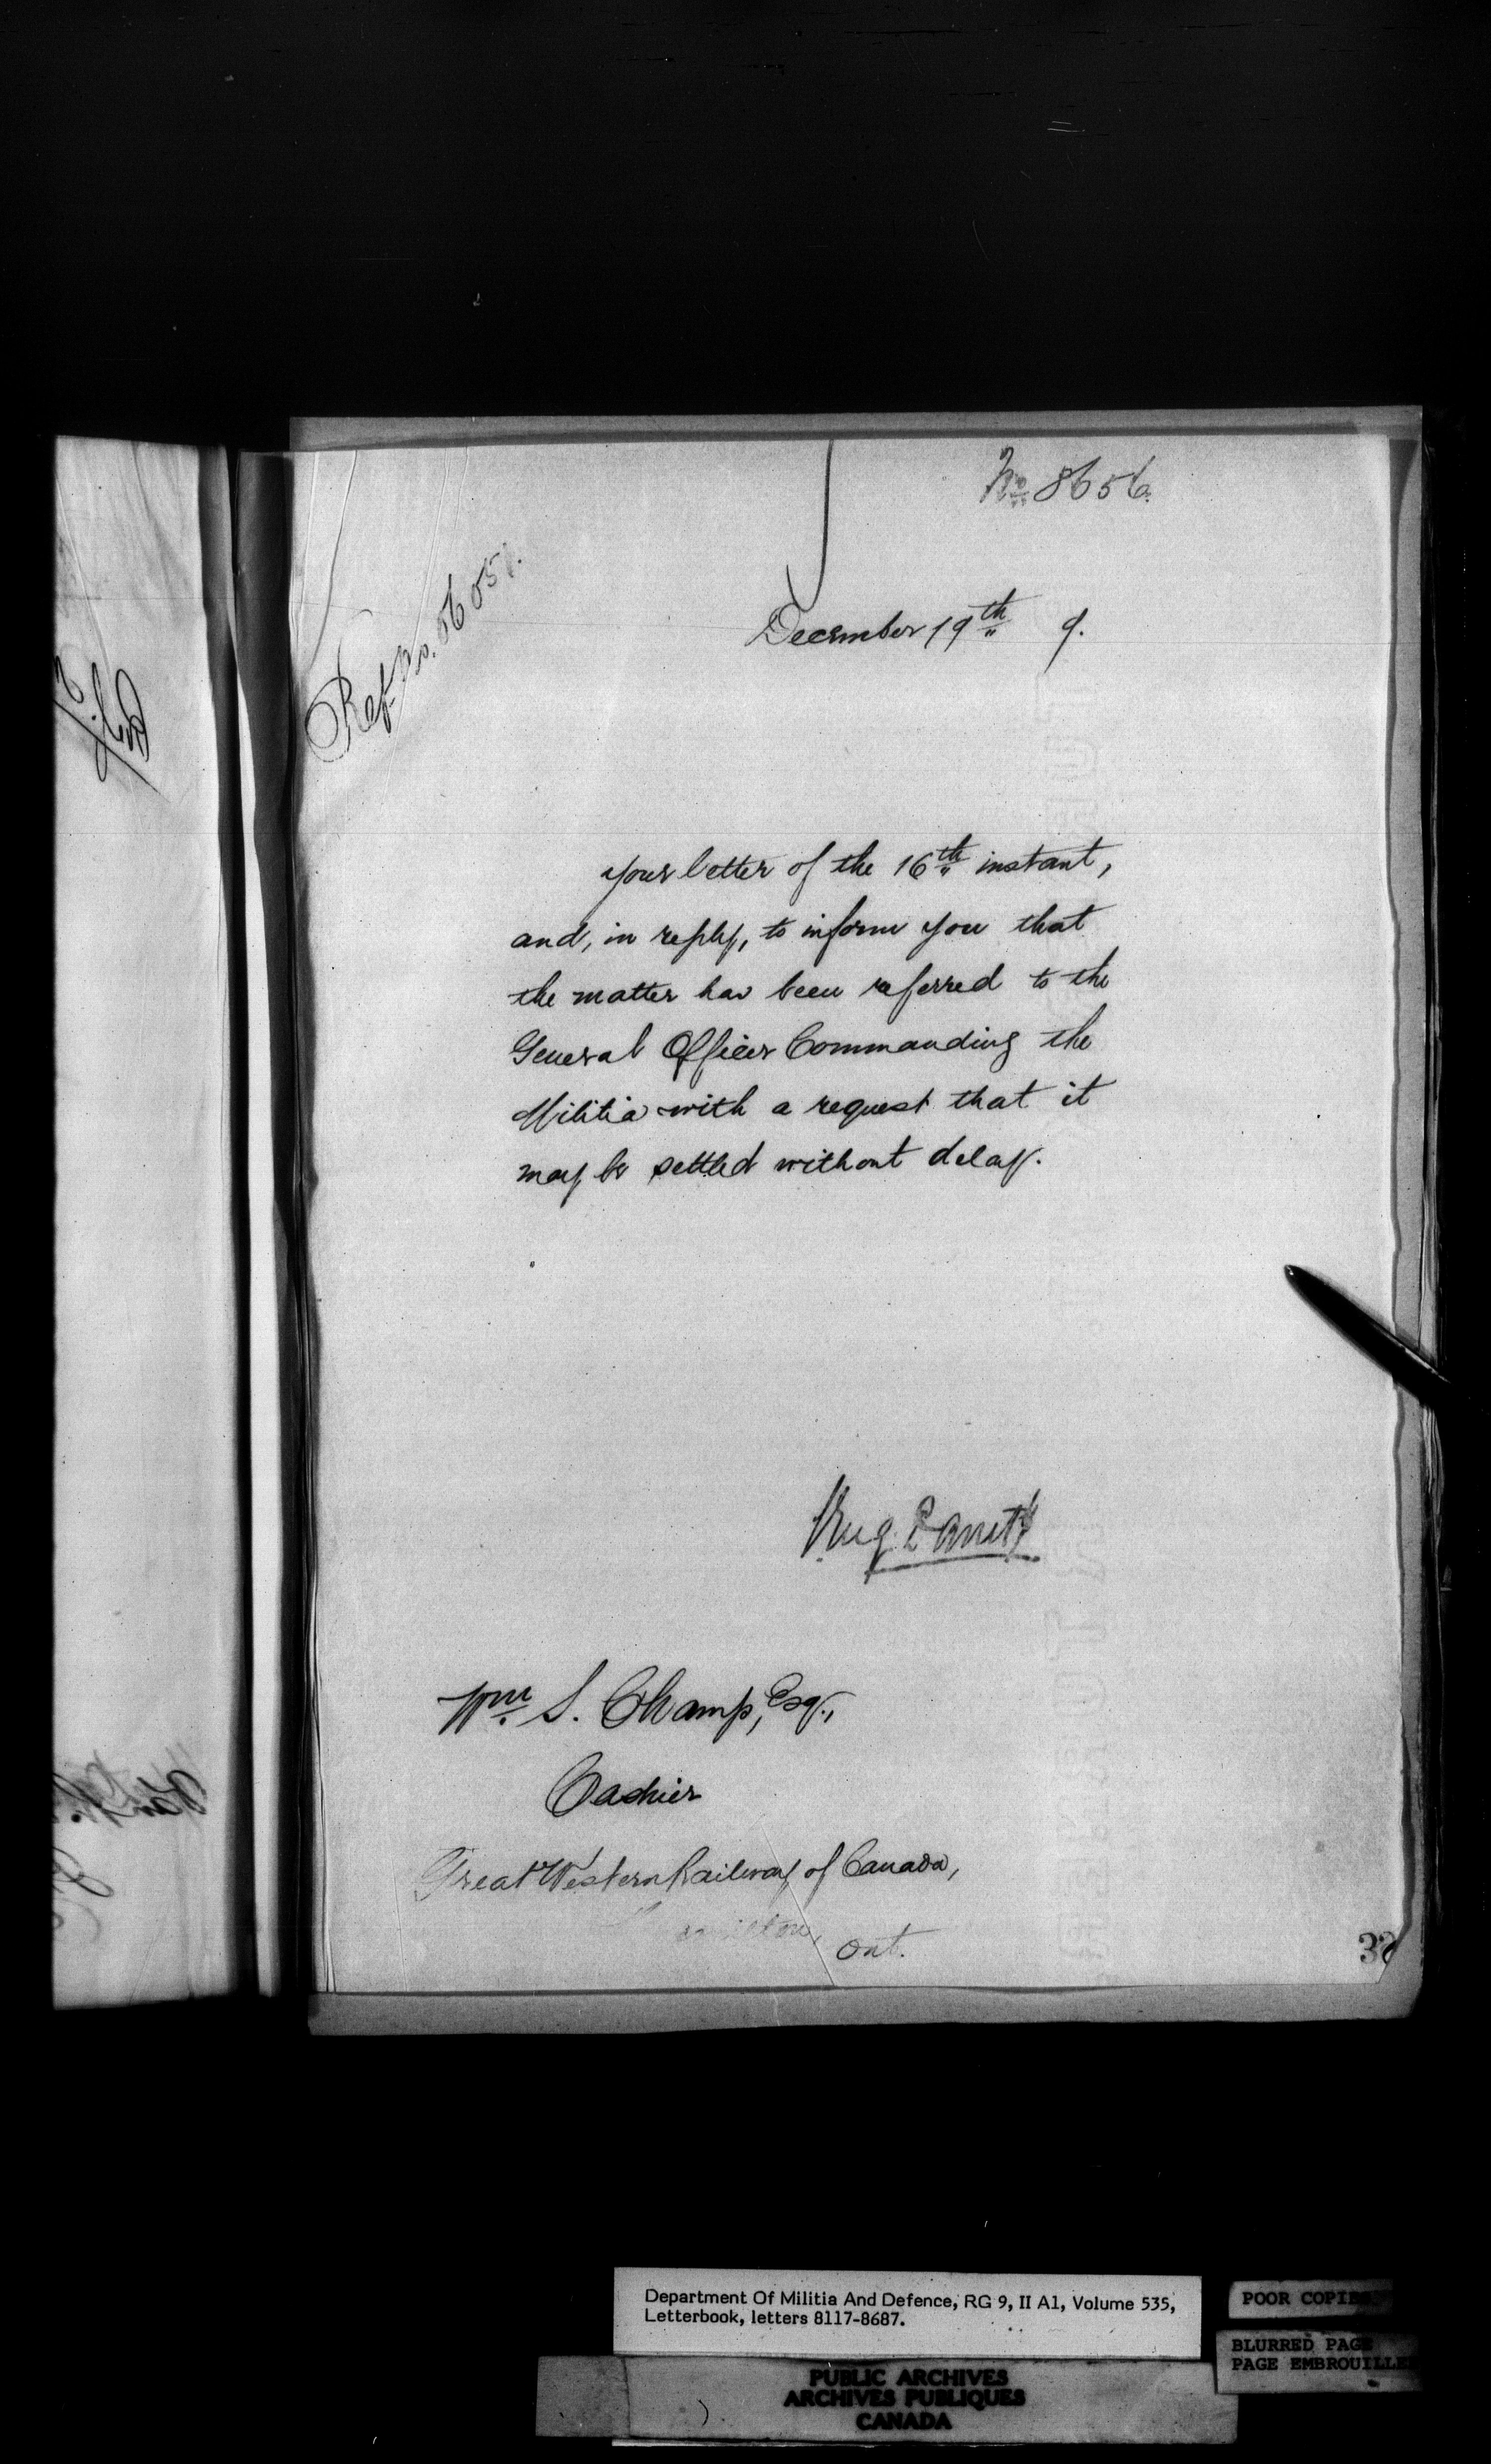 No 8656.
Ref. No. 0605
December 19th 9.
your letter of the 16th instant,
and, in reply, to inform you that
the matter has been referred to the
General Officer Commanding the
Militia with a request that it
may be settled without delay.
Wm. S. Champ, Esq.,
Cashier
Great Western Railway of Canada,
Ont.
Department Of Militia And Defence, RG 9, II A1, Volume 535,
Letterbook, letters 8117-8687.
POOR COPIES
BLURRED PAGE
PAGE EMBROUILLEE
PUBLIC ARCHIVES
ARCHIVES PUBLIQUES
CANADA